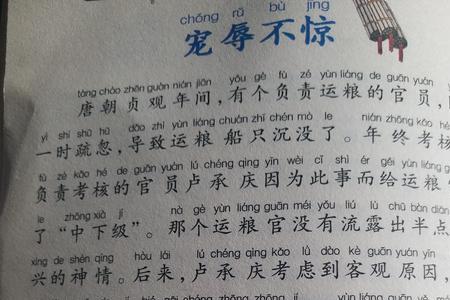 chǒng rǔ bù jīng
宠辱不惊
táng cháo zhēn guān nián jiān yǒu gè fù zé yùn liáng de guān yuán
唐朝贞观年间，有个负责运粮的官员，
yì shí shū hū dǎo zhì yùn liáng chuán zhī chén mò le nián zhōng kǎo hé
一时疏忽，导致运粮船只沉没了。年终考核
fù zé kǎo hé de guān yuán lú chéng qìng yīn wèi cǐ shì ér gěi yùn liáng
负责考核的官员卢承庆因为此事而给运粮
le zhōng xià jí nà gè yùn liáng guān méi yǒu liú lù chū bàn diǎn
了“中下级”。那个运粮官没有流露出半点
xìng de shén qíng hòu lái lú chéng qìng kǎo lǜ dào kè guān yuán yīn
兴的神情。后来，卢承庆考虑到客观原因，